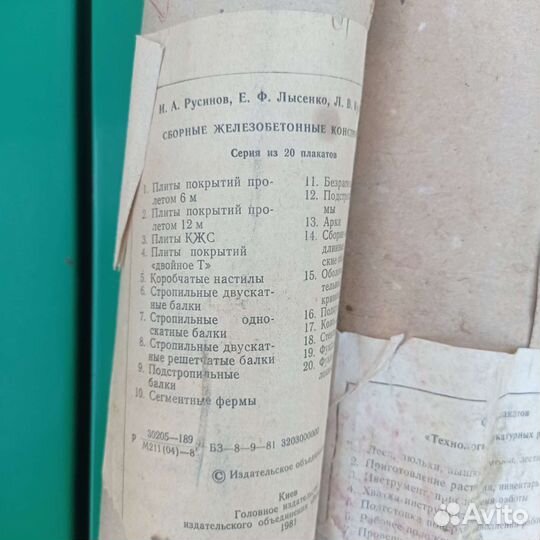 И. А. Русинов, Е. Ф. Лысенко, Л. В.
СБОРНЫЕ ЖЕЛЕЗОБЕТОННЫЕ КОНСТР
Серия из 20 плакатов
1. Плиты покрытий про-
летом 6 м
2. Плиты покрытий про-
летом 12 м
3. Плиты КЖС
4. Плиты покрытий
«двойное Т»
5. Коробчатые настилы
6. Стропильные двускат-
ные балки
7. Стропильные одно-
скатные балки
8. Стропильные двускат-
ные решетчатые балки
9. Подстропильные
балки
10. Сегментные фермы
11. Безрас
12. Подстр
мы
13. Арки
14. Сборн
длинн
ские
15. Оболо
тельн
крив
16. Поло
17. Коло
18. Стен
19. Фунд
20. Фун
30205—189
Р
М211(04)—8
БЗ—8—9—81 3203000000
© Издательское объедине
Киев
Головное издател
издательского объединен
1981
плакатов
«Техноло
катурных р
1. Леса, люльки, выш
2. Приготовление раст
инвентар
3. Инструмент
работы
4.
инстру
5. Подготовка повер
6. Рабочее
7. Прове
Avito